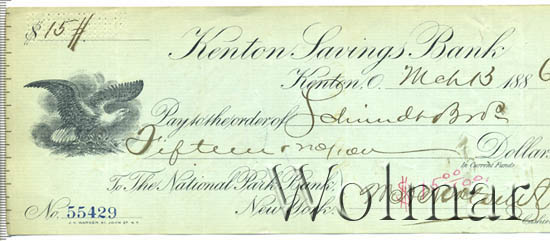 $ 15 #
Kenton Savings Bank
Kenton, O. Mch 13 1886
Pay to the order of Schmidt Bros
Fifteen & no/100 Dollar
In Current Funds.
To The National Park Bank,
New York.
No. 55429
Wolmar